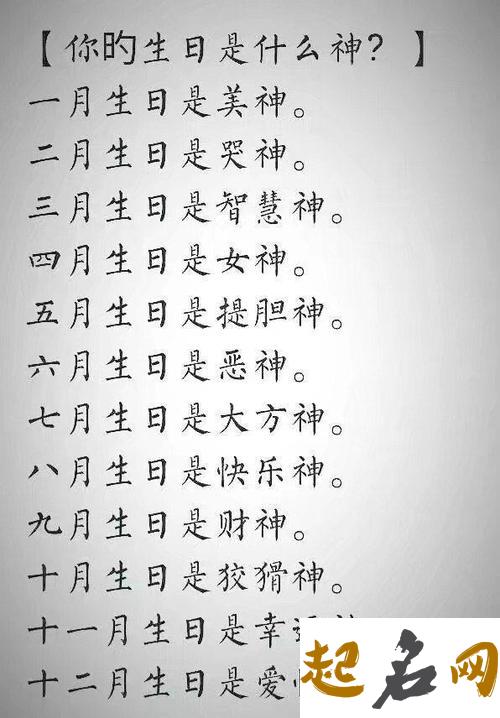 【你旳生日是什么神？】
一月生日是美神。
二月生日是哭神。
三月生日是智慧神。
四月生日是女神。
五月生日是提胆神。
六月生日是恶神。
七月生日是大方神。
八月生日是快乐神。
九月生日是财神。
十月生日是狡猾神。
十一月生日是幸
十二月生日是爱
起名网